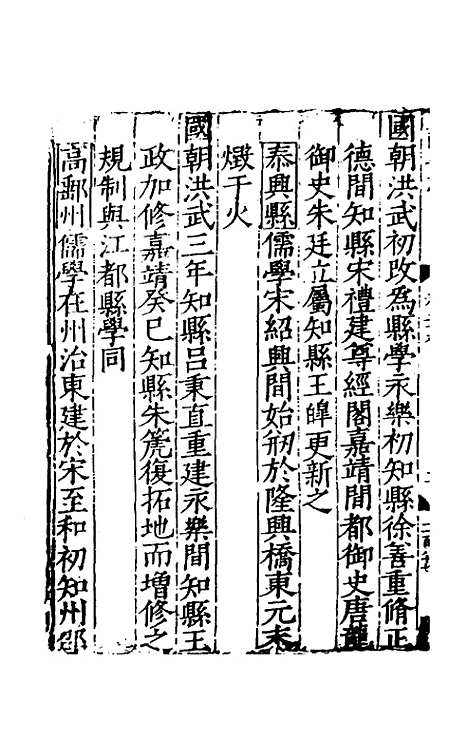 國朝洪武初改為縣學永樂初知縣徐善重脩正
德間知縣宋禮建尊經閣嘉靖間都御史唐龍
御史朱廷立屬知縣王皥更新之
泰興縣儒學宋紹興間始剏於隆興橋東元末
燬于火
國朝洪武三年知縣呂秉直重建永樂間知縣王
政加修嘉靖癸巳知縣朱篪復拓地而增修之
規制與江都縣學同
高郵州儒學在州治東建於宋至和初知州邵